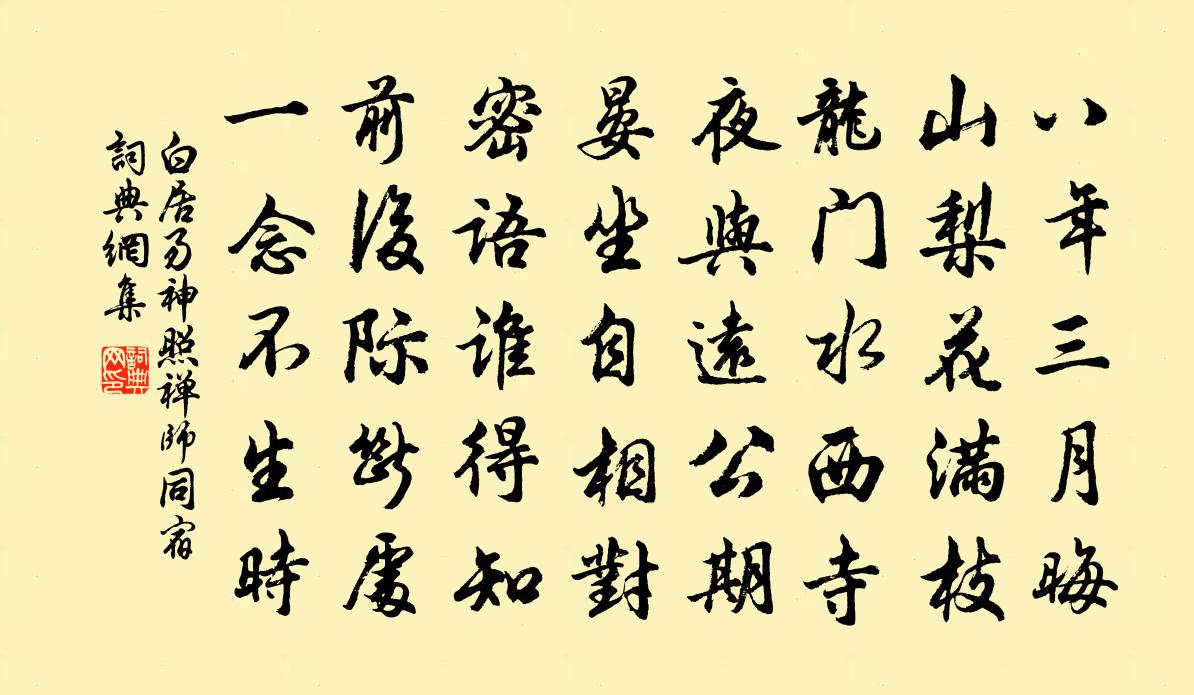 八年三月晦
山梨花滿枝
龍门水西寺
夜與遠公期
晏坐自相對
密语谁得知
前後际斷處
一念不生時
白居易神照禅师同宿
詞典網集
詞典
网印